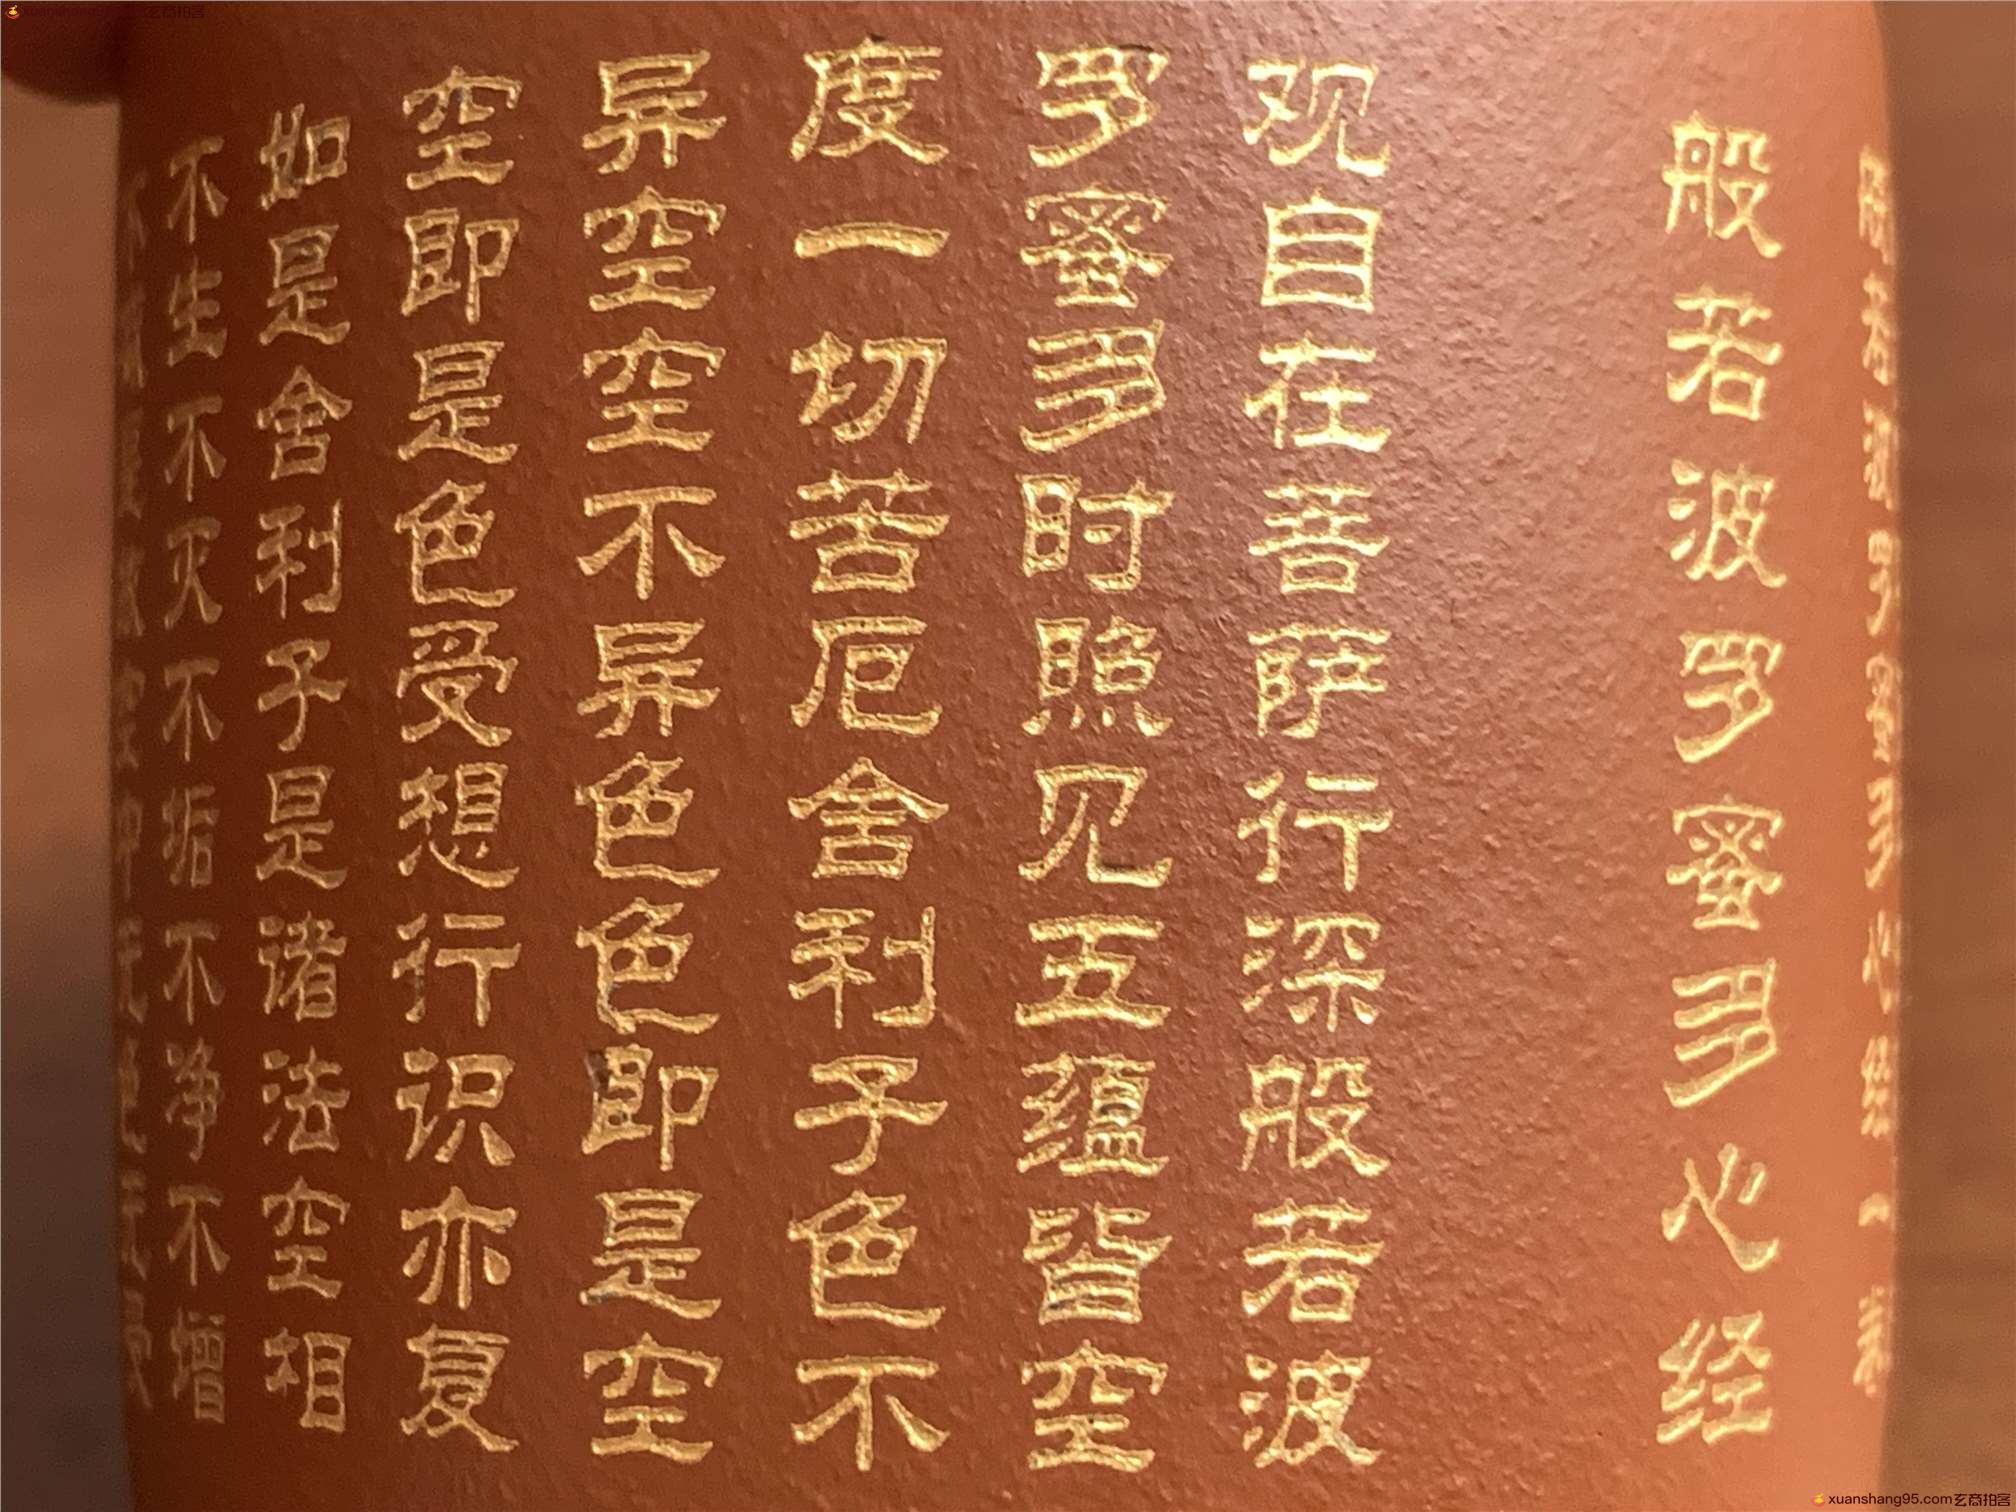 般若波罗蜜多心经
观自在菩萨行深般若波
罗蜜多时照见五蕴皆空
度一切苦厄舍利子色不
异空空不异色色即是空
空即是色受想行识亦复
如是舍利子是诸法空相
不生不灭不垢不净不增
xuanshang95.com玄商拍客